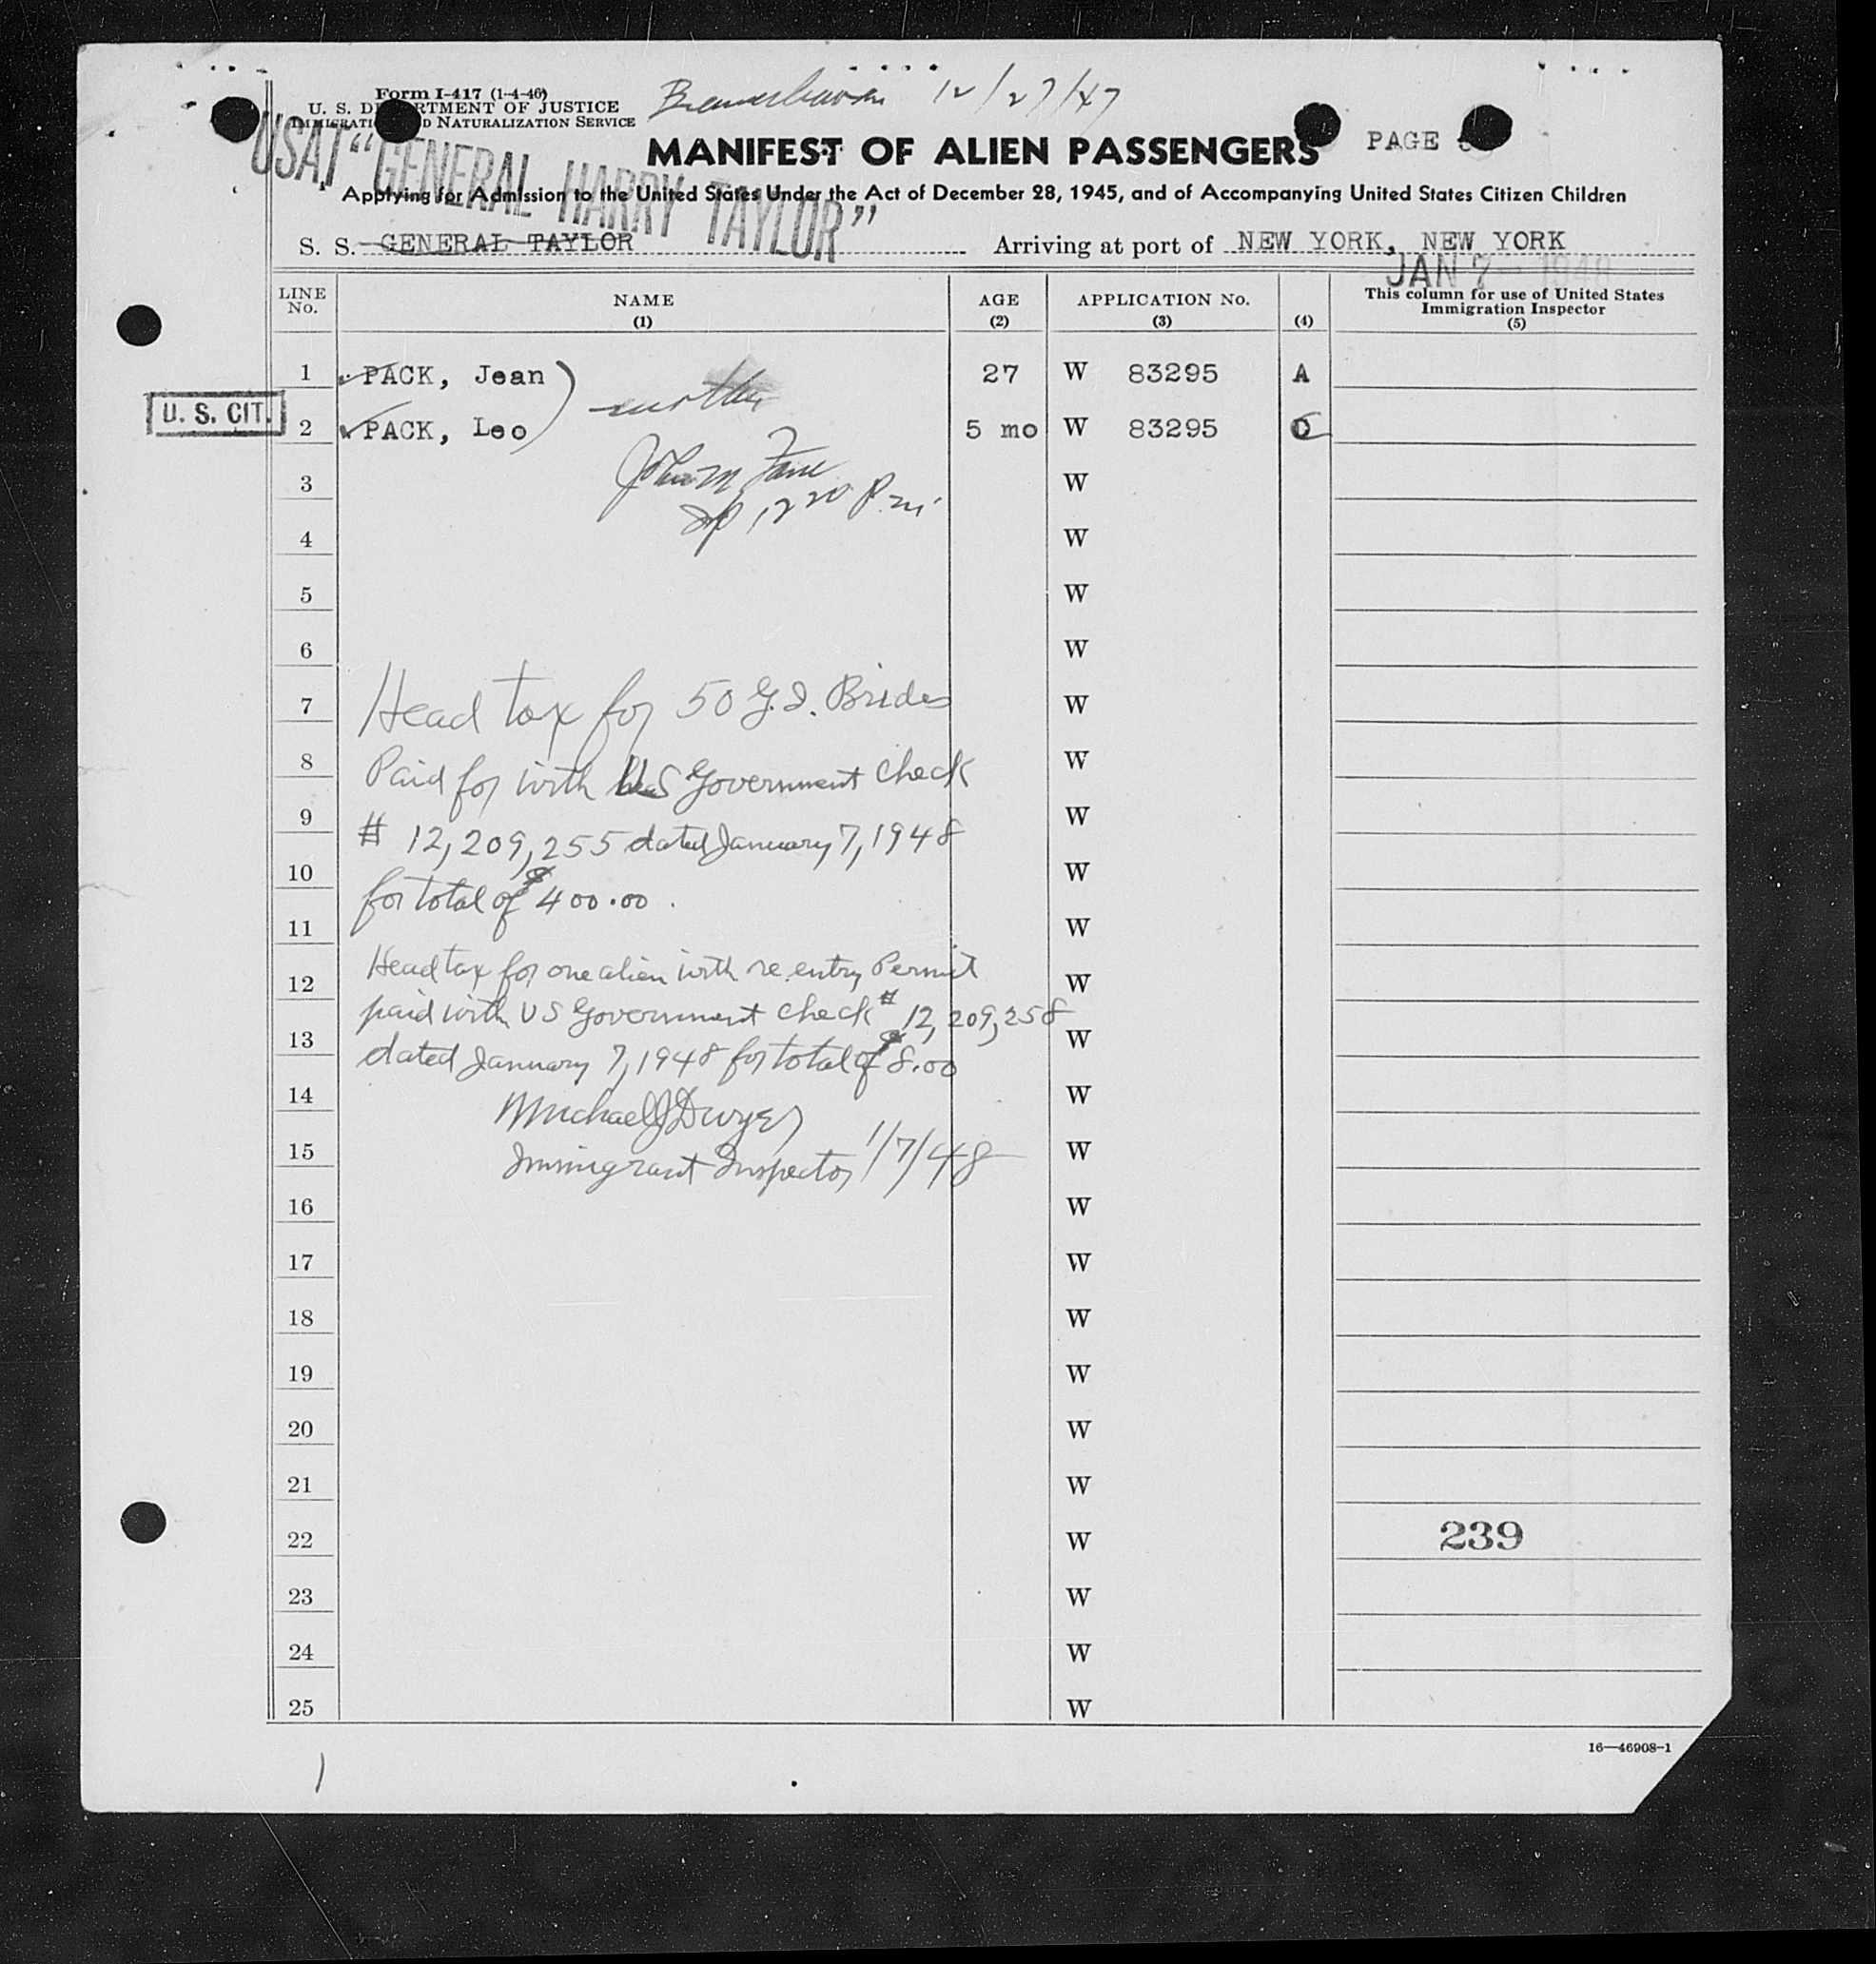 Form I-417 (1-4-46)
U. S. DEPARTMENT OF JUSTICE
IMMIGRATION AND NATURALIZATION SERVICE
Bremerhaven 12/27/47
USAT "GENERAL HARRY TAYLOR"
MANIFEST OF ALIEN PASSENGERS
PAGE
Applying for Admission to the United States Under the Act of December 28, 1945, and of Accompanying United States Citizen Children
S. S. GENERAL TAYLOR Arriving at port of NEW YORK, NEW YORK
JAN 7 - 1948
LINE No. NAME (1) AGE (2) APPLICATION No. (3) (4) This column for use of United States Immigration Inspector (5)
1 PACK, Jean 27 W 83295 A
mother
U. S. CIT.
2 PACK, Leo 5 mo W 83295 C
John M
3 W
1220 P.m.
4 W
5 W
6 W
7 Head tax for 50 G.I. Brides W
8 Paid for with US Government check W
9 # 12,209,255 dated January 7, 1948 W
10 for total of $400.00. W
11 W
12 Head tax for one alien with re entry Permit W
paid with US Government check # 12,209,258
13 dated January 7, 1948 for total of $8.00 W
14 Michael J Dwyer W
15 Immigrant Inspector 1/7/48 W
16 W
17 W
18 W
19 W
20 W
21 W
22 W 239
23 W
24 W
25 W
16—46908-1